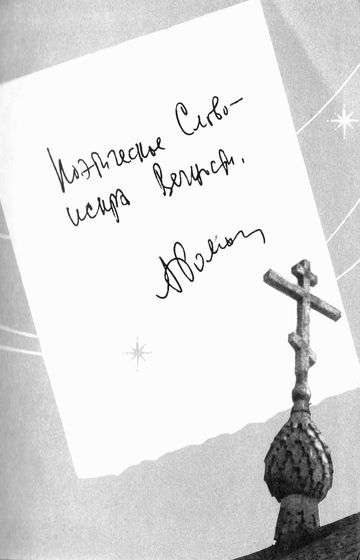 Поэтическое Слово –
искра Вечности.